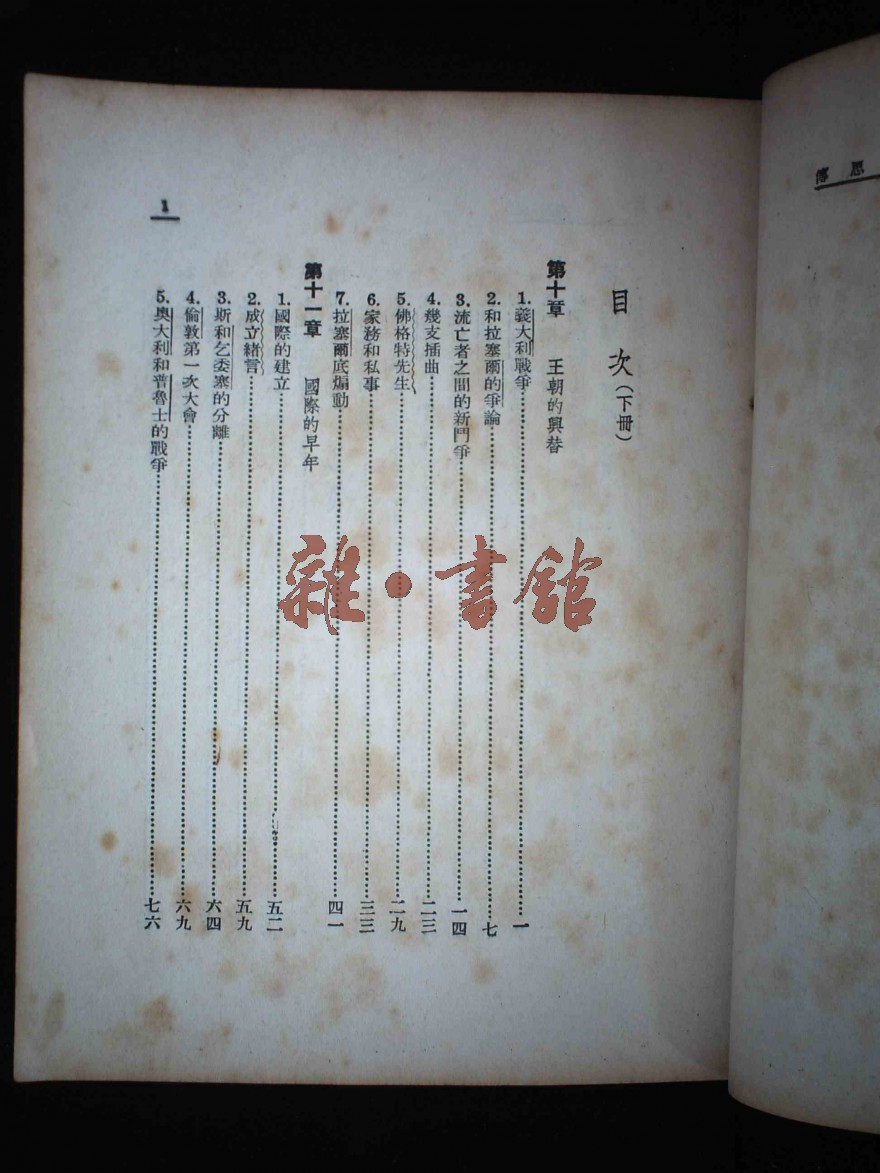 目次(下冊)
第十章 王朝的興替
1.義大利戰爭……一
2.和拉塞爾的爭論……七
3.流亡者之間的新鬥爭……一四
4.幾支插曲……二三
5.佛格特先生……二九
6.家務和私事……三三
7.拉塞爾底煽動……四一
第十一章 國際的早年
1.國際的建立……五二
2.成立緒言……五九
3.斯和乞委塞的分離……六四
4.倫敦第一次大會……六九
5.奧大利和普魯士的戰爭……七六
1
思傳
雜·書館